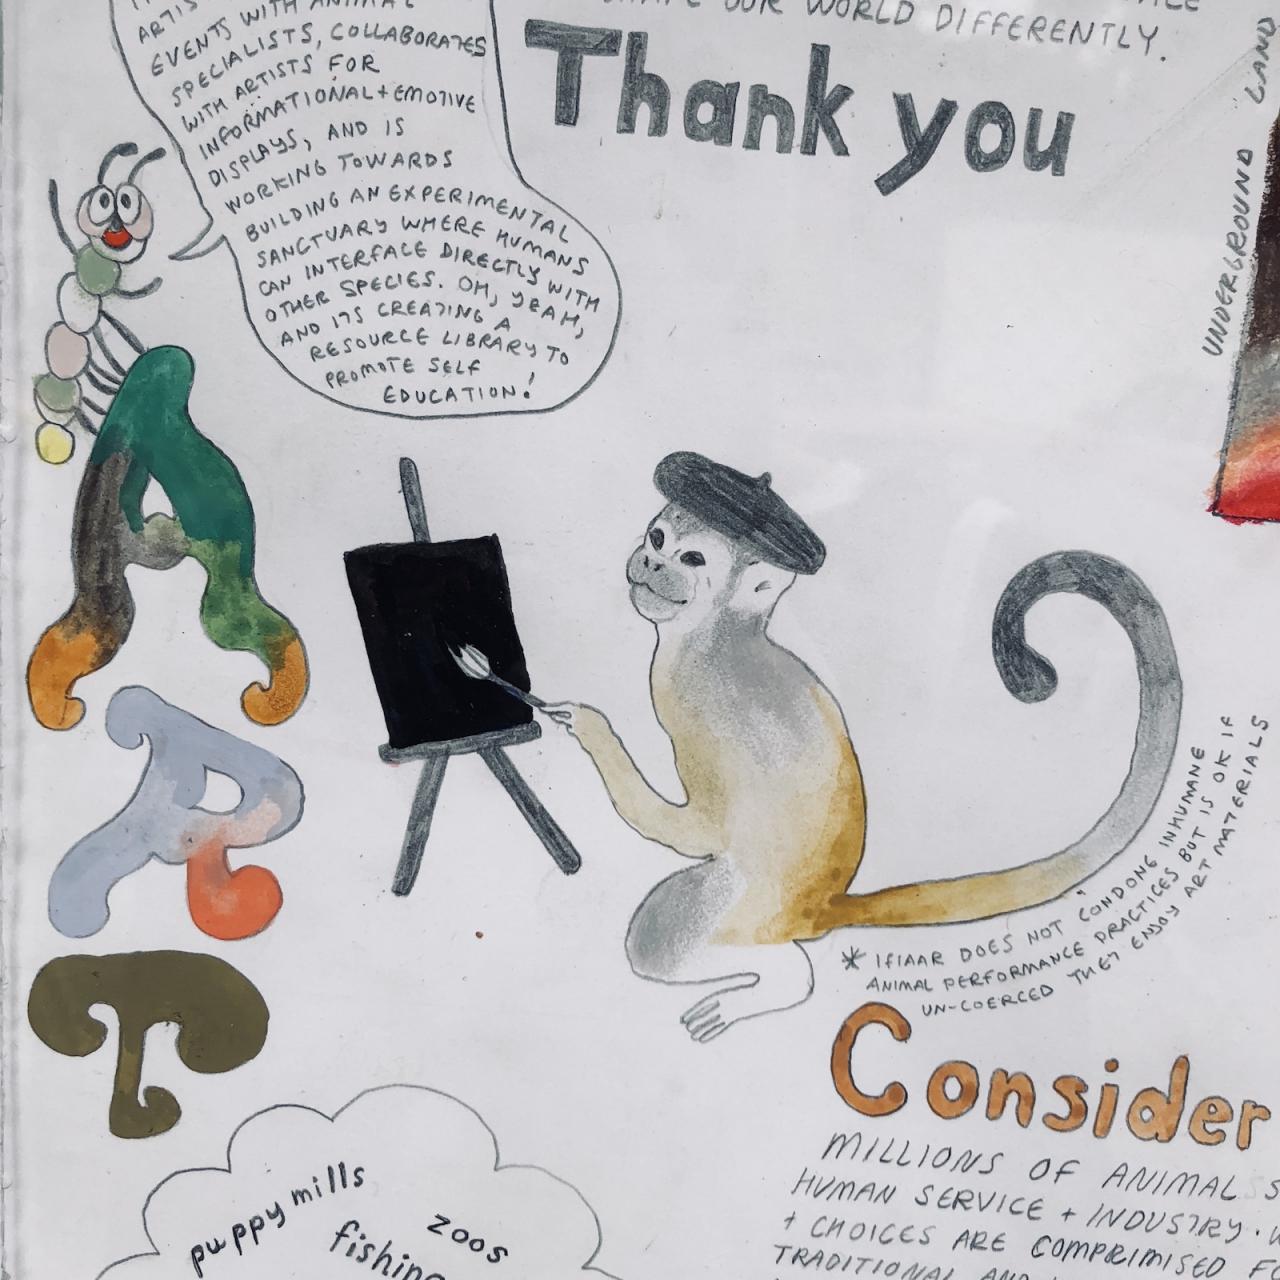 EVENTS WITH ANIMAL
SPECIALISTS, COLLABORATES
WITH ARTISTS FOR
INFORMATIONAL + EMOTIVE
DISPLAYS, AND IS
WORKING TOWARDS
BUILDING AN EXPERIMENTAL
SANCTUARY WHERE HUMANS
CAN INTERFACE DIRECTLY WITH
OTHER SPECIES. OH, YEAH,
AND ITS CREATING A
RESOURCE LIBRARY TO
PROMOTE SELF
EDUCATION!
OUR WORLD DIFFERENTLY.
Thank you
UNDERGROUND LAND
A
R
T
* IFIAAR DOES NOT "CONDONG INHUMANE
ANIMAL PERFORMANCE PRACTICES BUT IS OK IF
UN-COERCED THEY ENJOY ART MATERIALS
Consider
MILLIONS OF ANIMALS
HUMAN SERVICE + INDUSTRY.
+ CHOICES ARE COMPRIMISED
TRADITIONAL AND
puppy mills
zoos
fishing